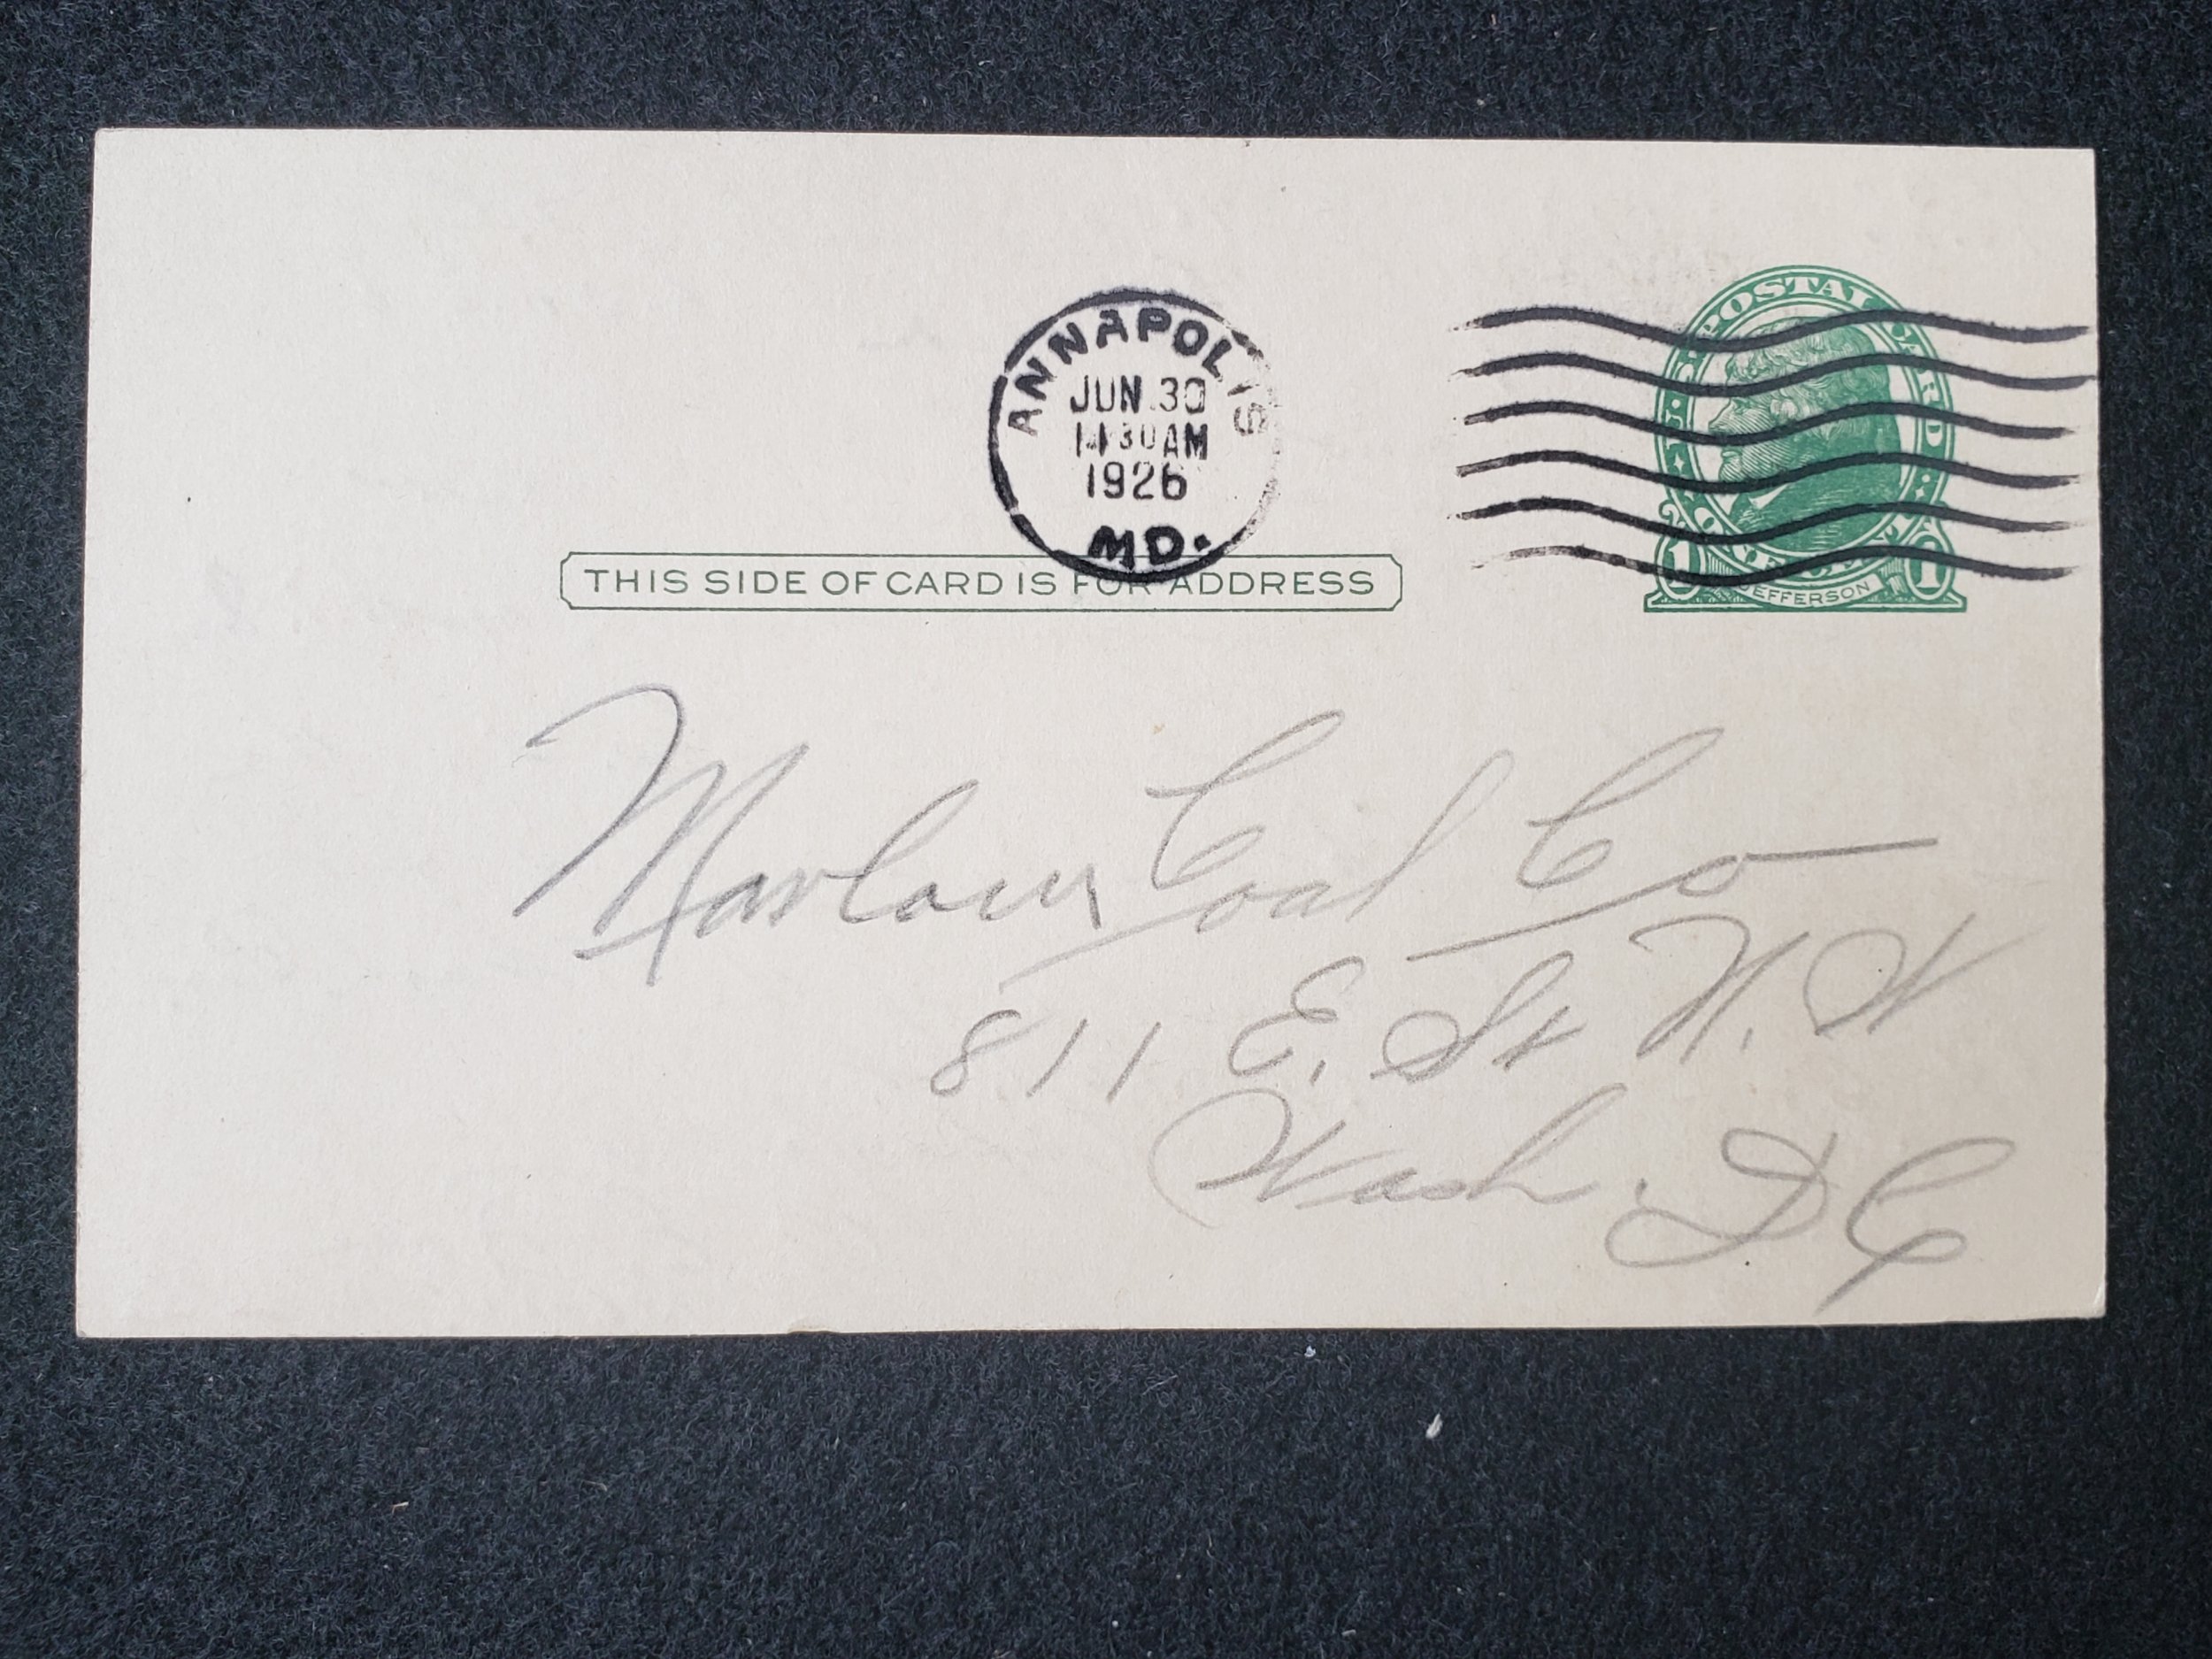 ANNAPOLIS
JUN 30
11 30 AM
1926
MD.
U.S. POSTAL CARD
ONE CENT
1 1
JEFFERSON
THIS SIDE OF CARD IS FOR ADDRESS
Marlow Coal Co
811 E. St N.W
Wash. DC